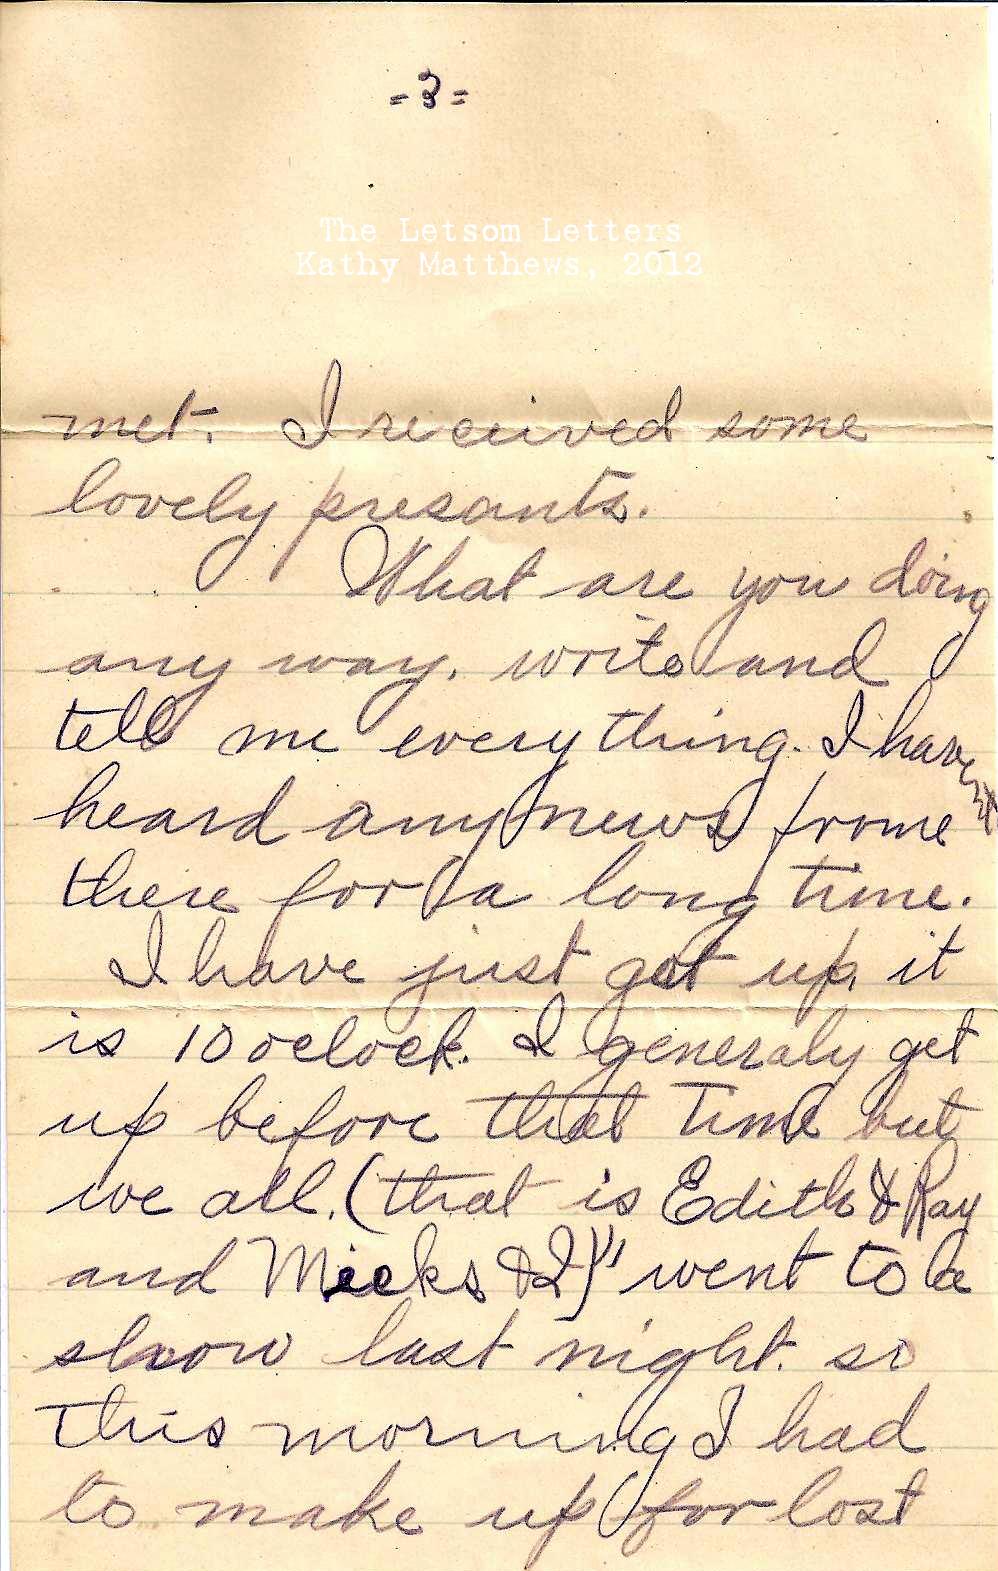 -3-
The Letsom Letters
Kathy Matthews, 2012
met. I received some
lovely presants.
What are you doing
any way. write and
tell me everything. I havent
heard any news frome
there for a long time.
I have just got up, it
is 10 oclock. I generaly get
up before that time but
we all, (that is Edith & Ray
and Micks & I)" went to a
show last night. so
this morning I had
to make up for lost